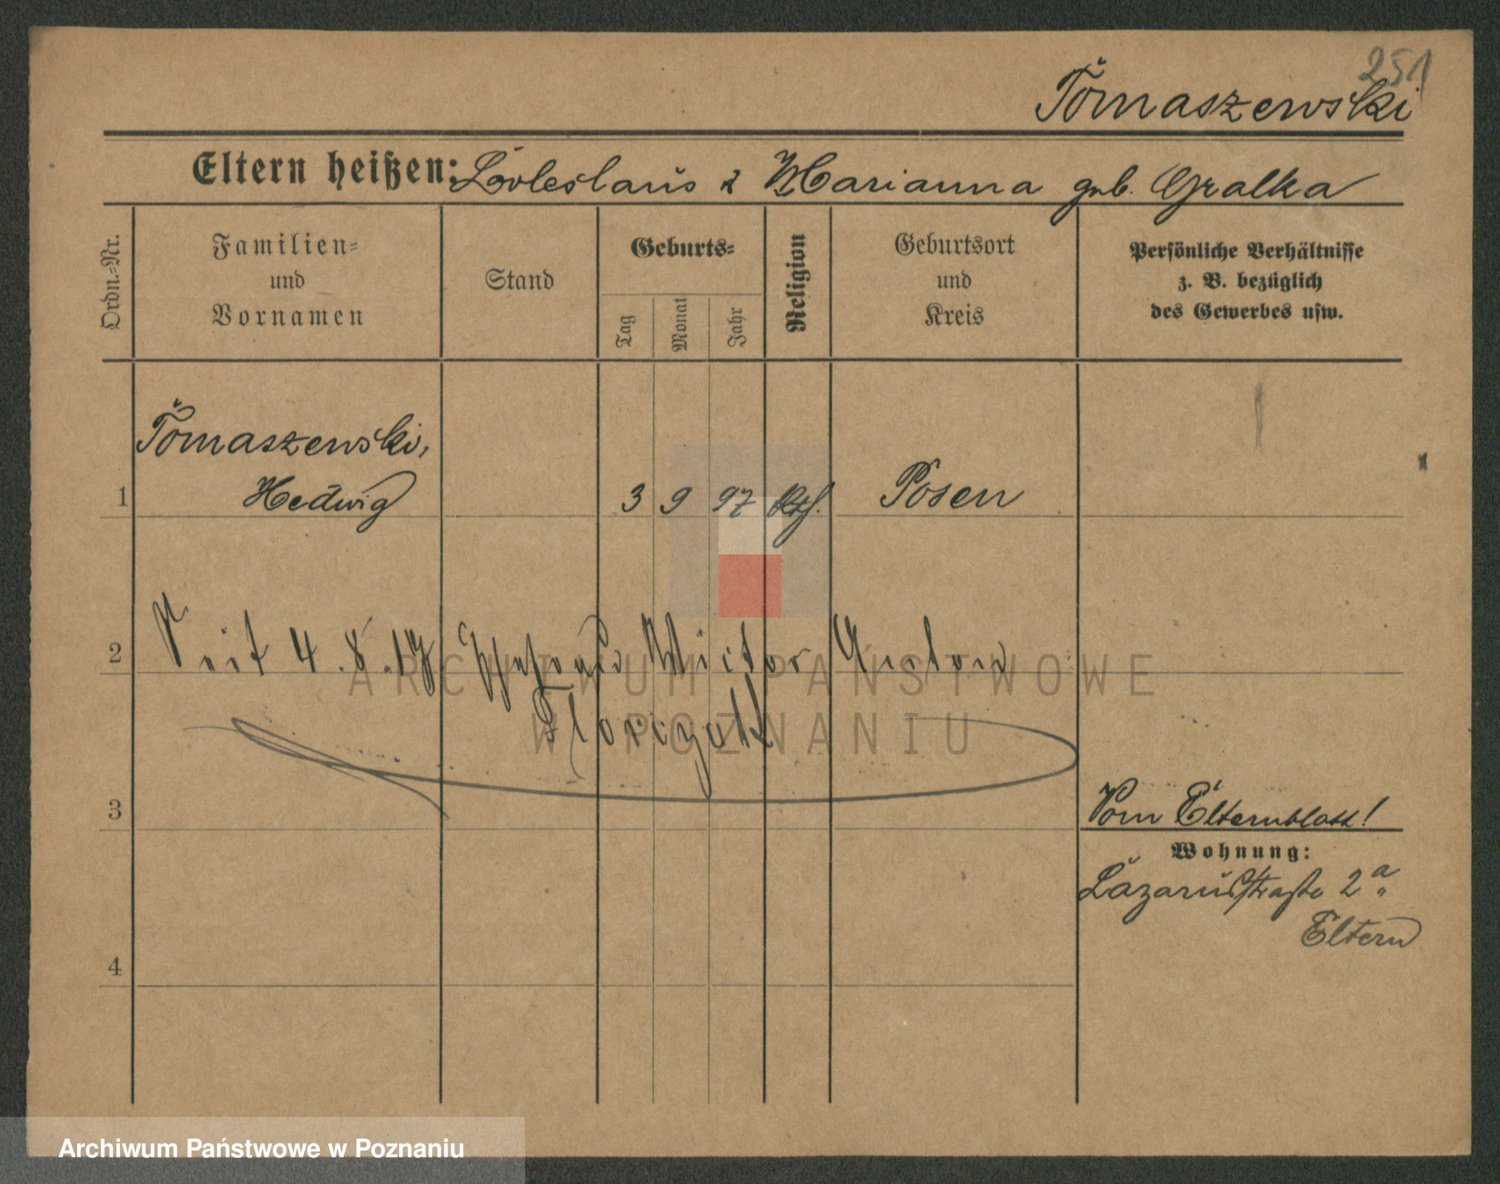 251
Tomaszewski
Eltern heißen: Boleslaus & Marianna geb. Gralka
Ordn.=Nr.
Familien=
und
Vornamen
Stand
Geburts=
Tag
Monat
Jahr
Religion
Geburtsort
und
Kreis
Persönliche Verhältnisse
z. B. bezüglich
des Gewerbes usw.
1
Tomaszewski,
Hedwig
3 9 97 Kth. Posen
2
Seit 4.8.17 Ehefrau Victor Anton
Florczak
3
Vom Elternblatt!
Wohnung:
Lazarusstraße 2a
Eltern
4
ARCHIWUM PAŃSTWOWE
W POZNANIU
Archiwum Państwowe w Poznaniu